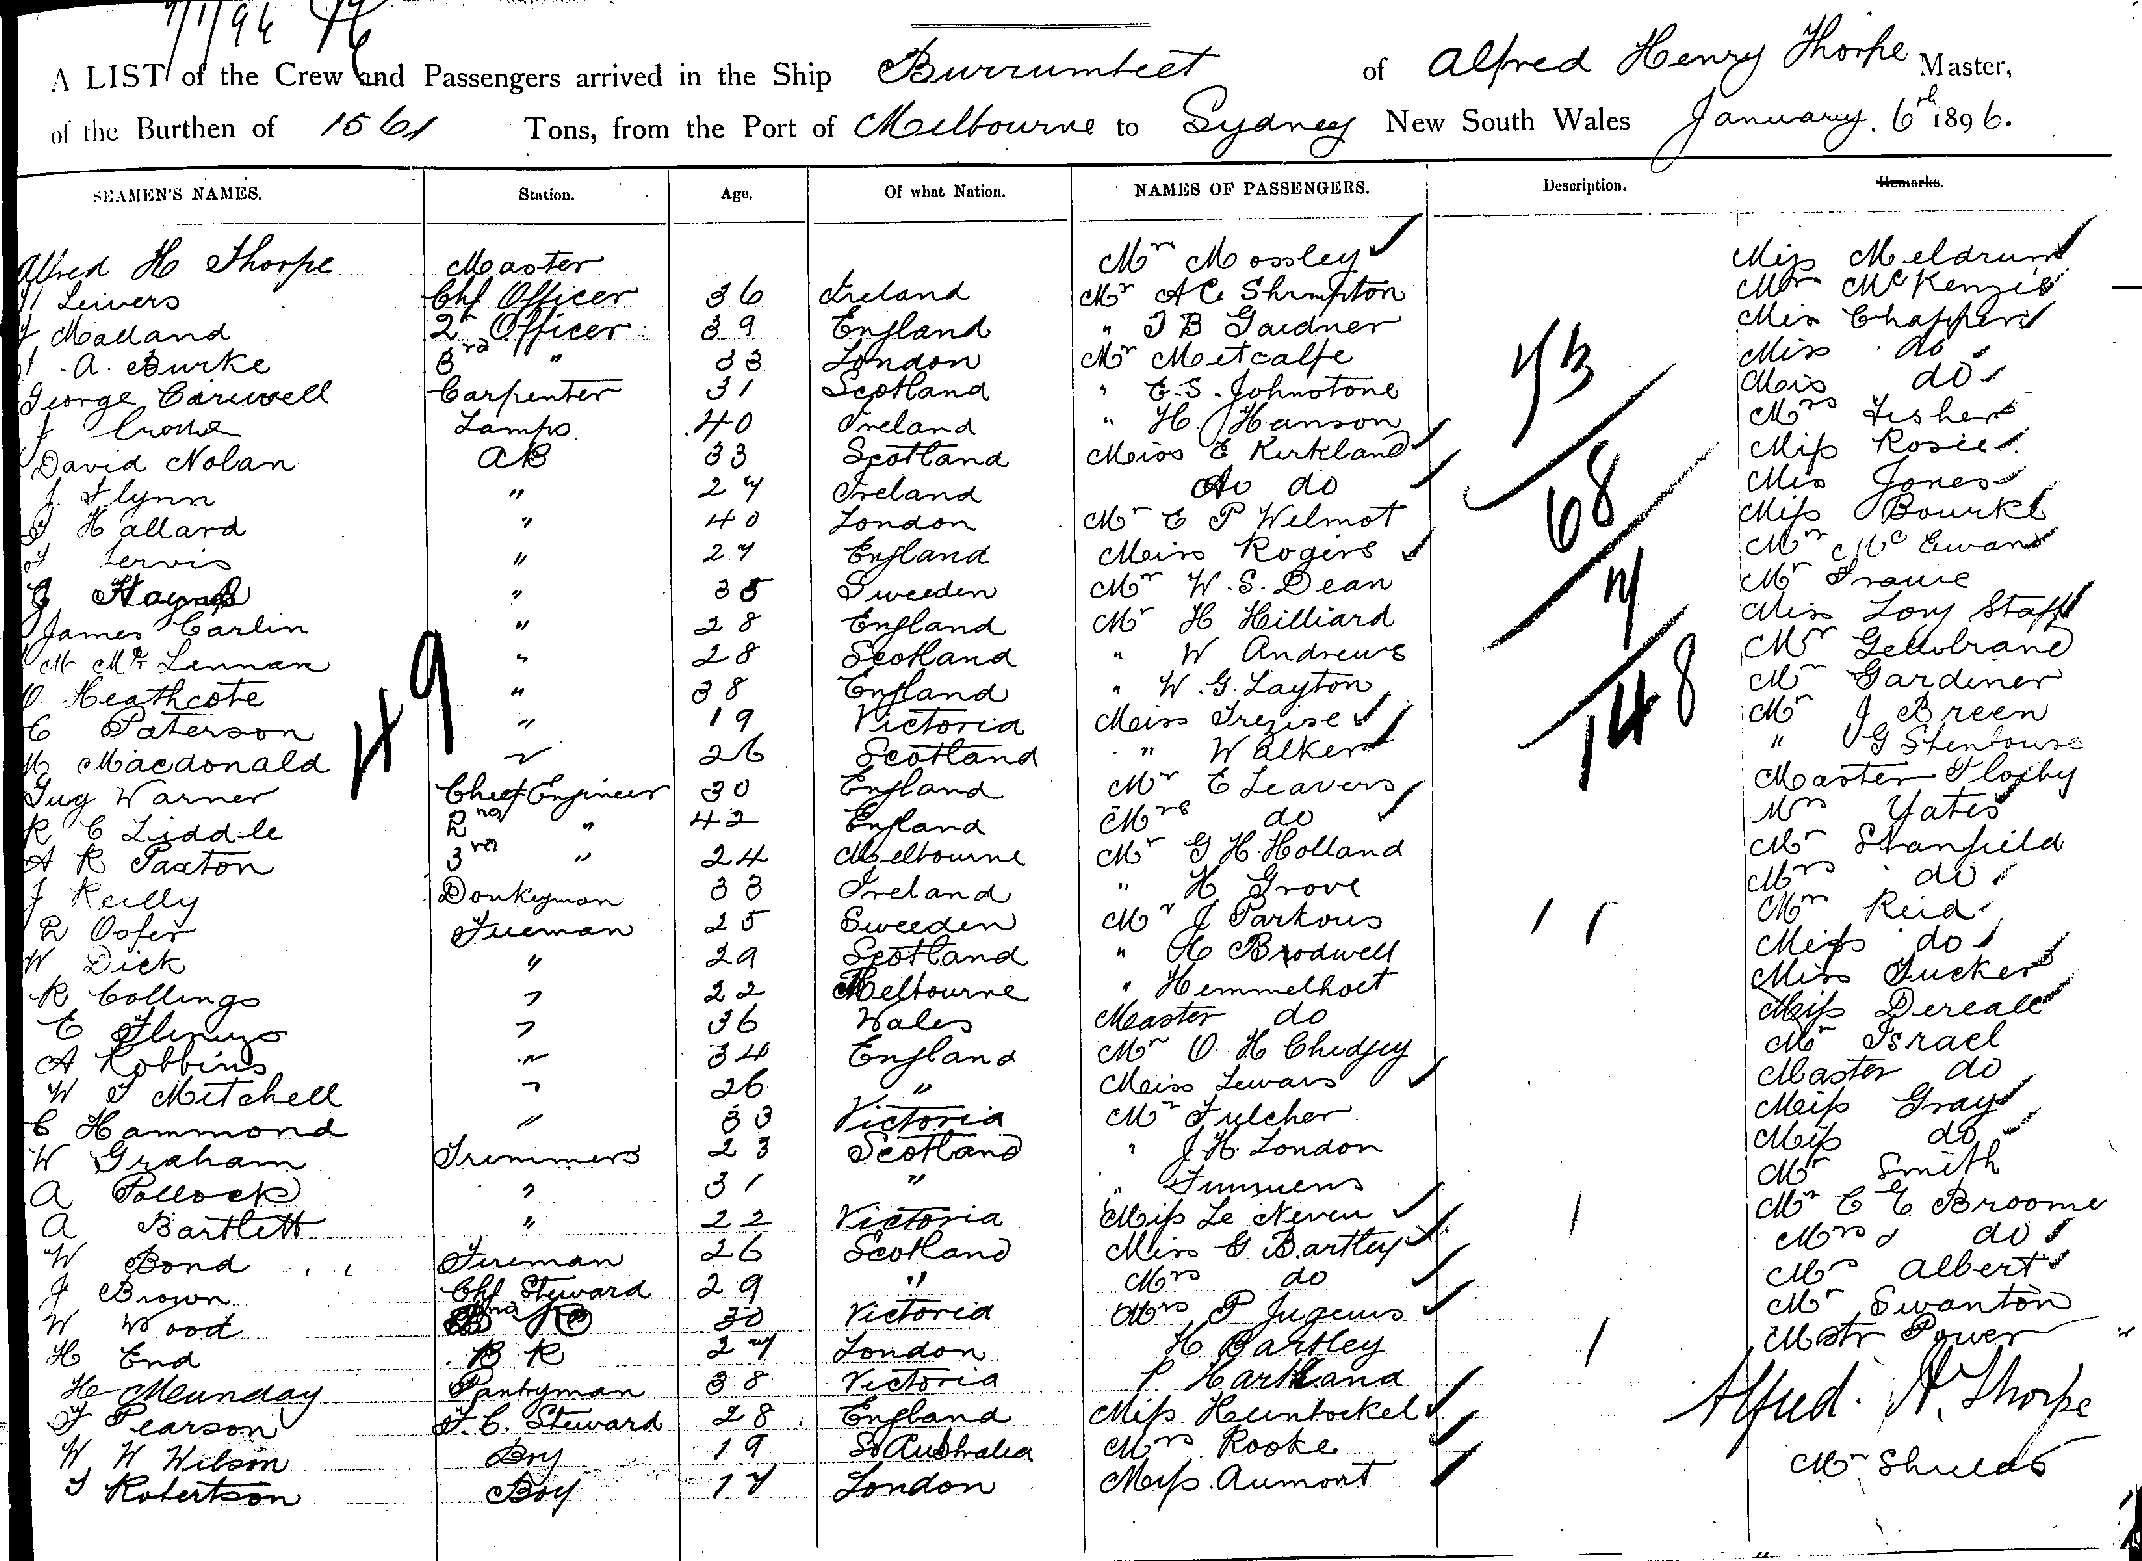 7/1/96
A LIST of the Crew and Passengers arrived in the Ship Burrumbeet of Alfred Henry Thorpe Master,
of the Burthen of 1561 Tons, from the Port of Melbourne to Sydney New South Wales January 6th 1896.
SEAMEN'S NAMES. Station. Age. Of what Nation. NAMES OF PASSENGERS. Description. Remarks.
Alfred H Thorpe Master Mrs Mossley Miss Meldrum
Leivers Chf Officer 36 Ireland Mr A C Shrimpton Mrs McKenzie
Malland 2d Officer 39 England " J B Gardner
A. Burke 3rd " 33 London Mr Metcalfe Miss do
George Carswell Carpenter 31 Scotland " E. S. Johnstone Miss do
J Lamps 40 Ireland " H. Hanson Mrs Fisher
David Nolan AB 33 Scotland Miss E Kirkland Miss Rosie
J Flynn " 27 Ireland do do Miss Jones
Hallard " 40 London Mr E P Wilmot Miss Bourke
" 27 England Miss Rogers Mrs McEwan
" 35 Sweeden Mr W. S. Dean Mr
James Carlin " 28 England Mr H Hilliard Miss
M McLennan " 28 Scotland " W Andrews Mr Gellibrand
O Heathcote " 38 England " W. G. Layton Mr Gardiner
C Paterson " 19 Victoria Miss Trezise Mr J Breen
M Macdonald " 26 Scotland " Walker " G Stenhouse
Guy Warner Chief Engineer 30 England Mr E Leavers Master
R C Liddle 2nd " 42 England Mrs do Mrs Yates
A R Paxton 3rd " 24 Melbourne Mr G H Holland Mr Stanfield
J Reilly Donkeyman 33 Ireland " H Grove Mrs do
R Osfer Fireman 25 Sweeden Mr J Parkous Mrs Reid
W Dick " 29 Scotland " H Brodwell Miss do
R Collings " 22 Melbourne " Hemmelhoet Miss Tucker
E " 36 Wales Master do Miss
A Robbins " 34 England Mr O H Chidgey Mr Israel
W J Mitchell " 26 " Miss Lewars Master do
C Hammond " 33 Victoria Mr Fulcher Miss Gray
W Graham Trimmers 23 Scotland " J H London Miss do
A Pollock " 31 " " Timmens Mr Smith
A Bartlett " 22 Victoria Miss Le Neven Mr C E Broome
W Bond Fireman 26 Scotland Miss G Bartley Mrs do
J Brown Chf Steward 29 " Mrs do Mrs Albert
W Wood 30 Victoria Mrs P Mr Swanton
H End B R 27 London H Bartley Mstr Power
H Munday Pantryman 38 Victoria P Hartland Alfred. H. Thorpe
F Pearson F. C. Steward 28 England Miss Huntockel
W H Wilson Boy 19 So Australia Mrs Rooke Mr Shields
T Robertson Boy 17 London Miss Aumont
49
73
68
7
148